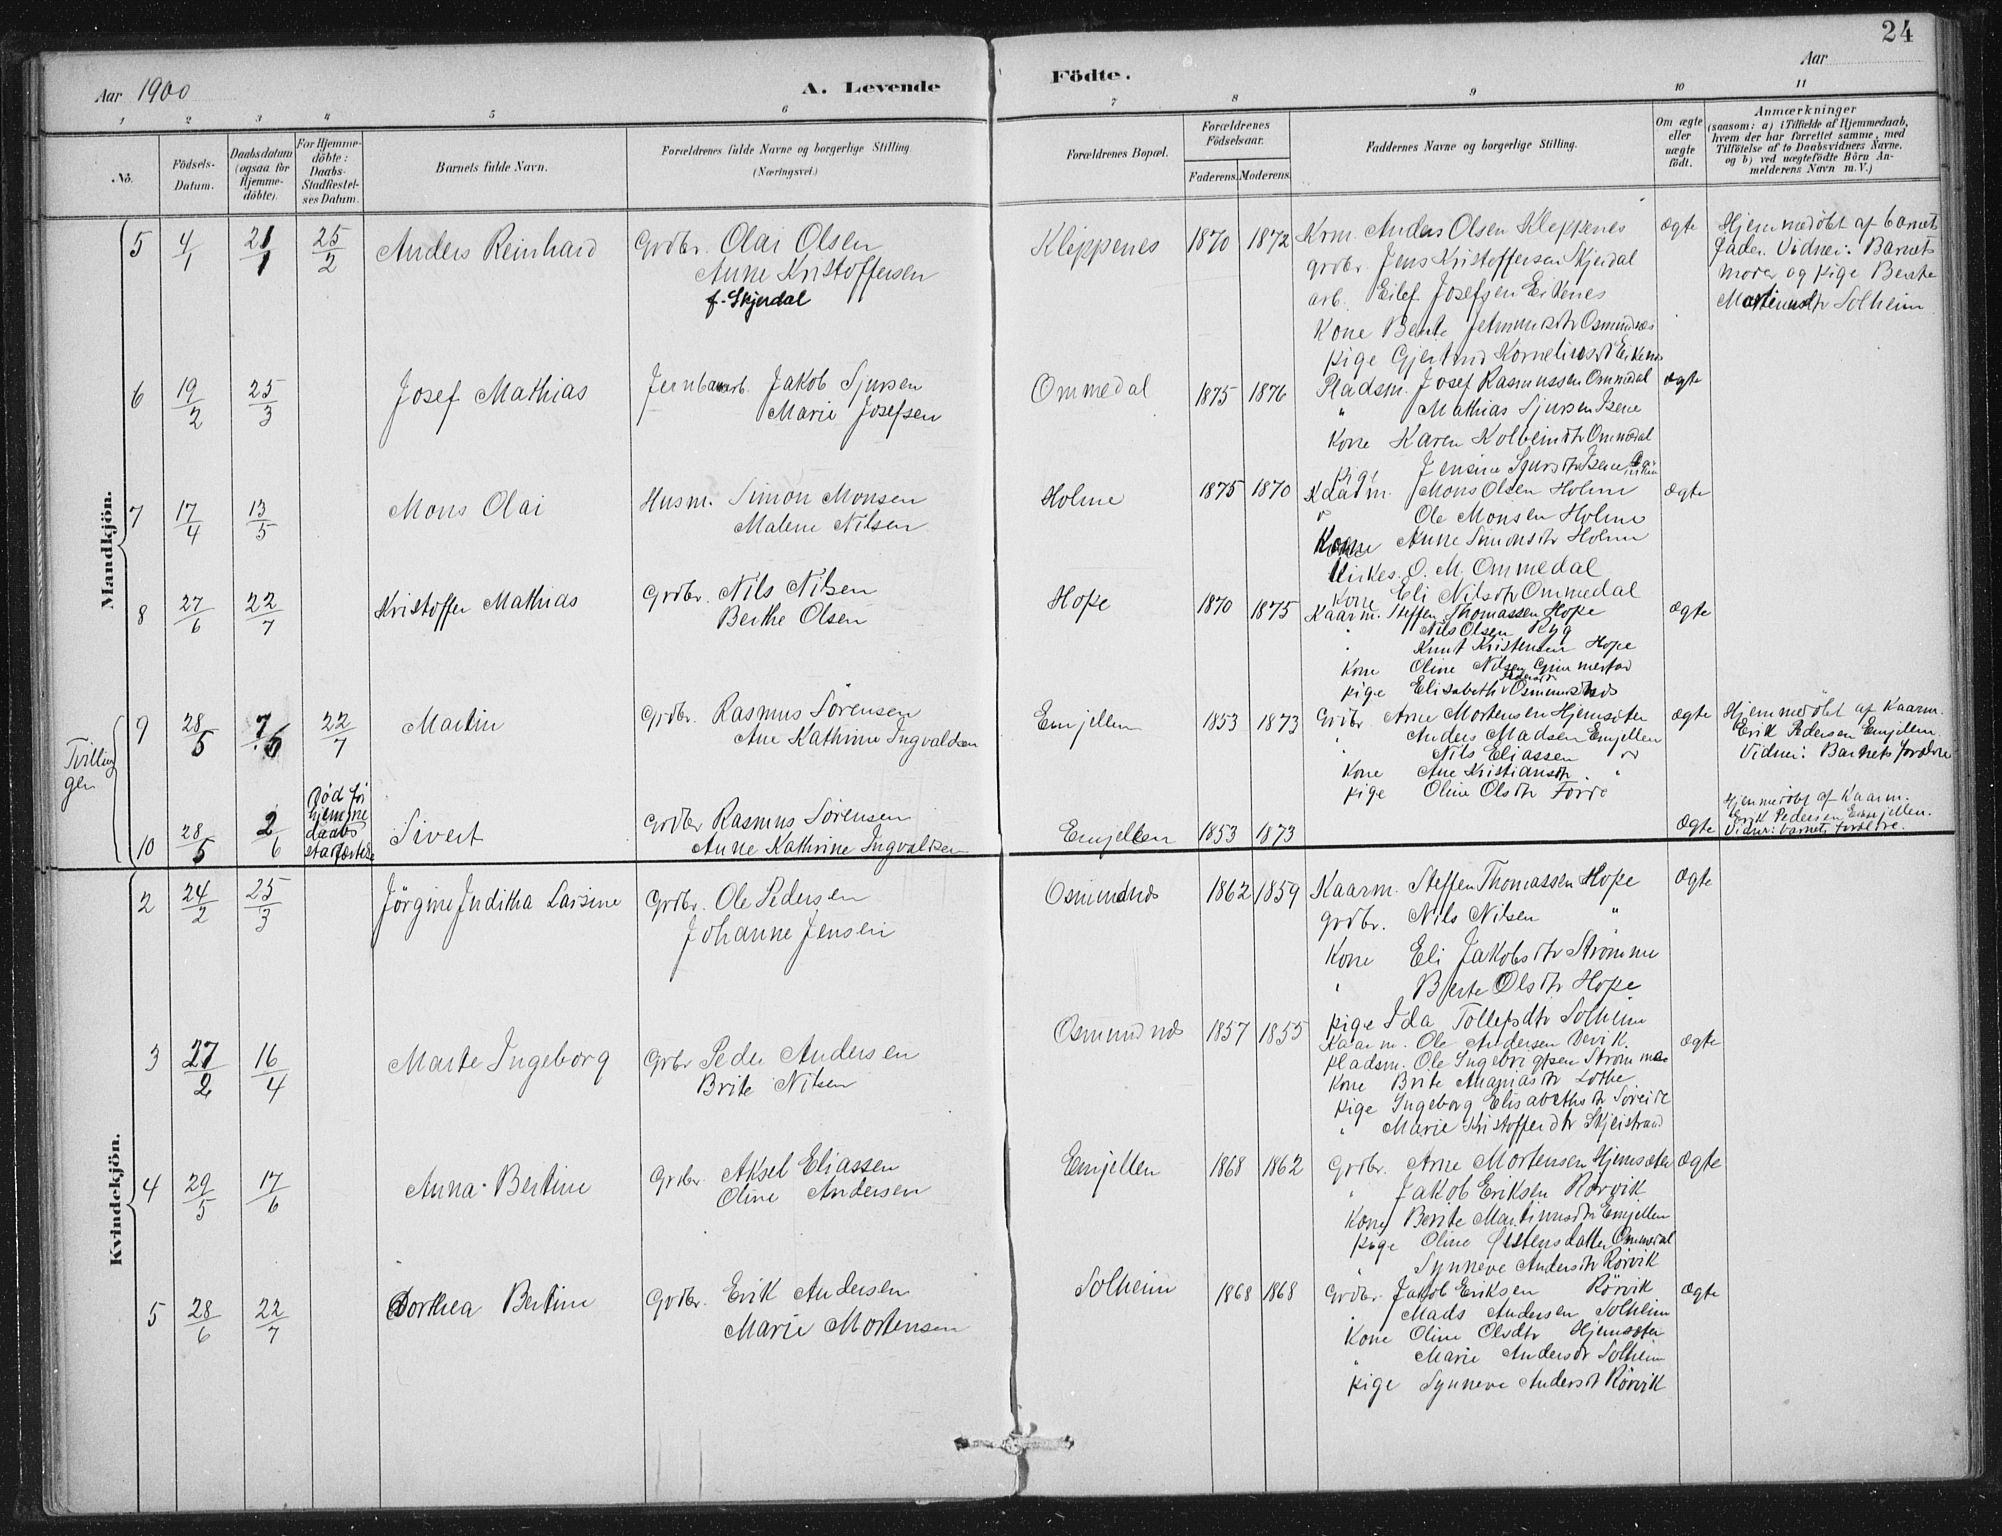 24
Aar 1900
A. Levende Födte.
Aar
1 2 3 4 5 6 7 8 9 10 11
No.
Födsels-Datum.
Daabsdatum (ogsaa for Hjemme-döbte).
For Hjemme-döbte: Daabs-Stadfæstel-ses Datum.
Barnets fulde Navn.
Forældrenes fulde Navne og borgerlige Stilling.
(Næringsvei.)
Forældrenes Bopæl.
Forældrenes Födselsaar.
Faderens. Moderens.
Faddernes Navne og borgerlige Stilling.
Om ægte eller uægte födt.
Anmærkninger
(saasom: a) i Tilfælde af Hjemmedaab,
hvem der har forrettet samme, med
Tilföielse af to Daabsvidners Navne,
og b) ved uægtefödte Börn An-
melderens Navn m. V.)
Mandkjön.
5 4/1 21/1 25/2 Anders Reinhard Grdbr. Olai Olsen Kleppenes 1870 1872 Krm. Anders Olsen Kleppenes ægte Hjemmedøbt af barnets
Anne Kristoffersen grdbr Jens Kristoffersen Skjerdal fader. Vidner: Barnets
f. Skjerdal arb. Eilef Josefsen Eikenes moder og pige Berthe
Kone Bente Osmundnes Solheim
pige Gjertrud Korneliusdt Eikenes
6 19/2 25/3 Josef Mathias Jernbanarb. Jakob Sjursen Ommedal 1875 1876 Pladsm. Josef Rasmussen Ommedal ægte
Marie Josefsen " Mathias Sjursen Isene
Kone Karen Kolbeinsdtr Ommedal
pige Jensine Sjursdtr Isene
7 17/4 13/5 Mons Olai Husm. Simon Monsen Holme 1875 1870 Kaarm. Mons Olsen Holme ægte
Malene Nilsen " Ole Monsen Holme
Kone Anne Simonsdtr Holme
Kirkes. O. M. Ommedal
Kone Eli Nilsdtr Ommedal
8 27/6 22/7 Kristoffer Mathias Grdbr. Nils Nilsen Hope 1870 1875 Kaarm. Steffen Thomassen Hope ægte
Berthe Olsen " Nils Olsen Ryg
" Knut Kristensen Hope
Kone Oline Nilsen Gimmestad
pige Elisabeth Osmundnes
Tvillinger
9 28/5 7/6 22/7 Martin Grdbr. Rasmus Sørensen Emjellen 1853 1873 Grdbr Arne Mortensen Hjemsæter ægte Hjemmedøbt af Kaarm.
Ane Kathrine Ingvaldsen " Anders Madsen Emjellen Erik Pedersen Emjellen
" Nils Eliassen " Vidner: Barnets forældre
Kone Ane Kristiansdtr. "
pige Oline Olsdtr Førde
10 28/5 2/6 Død før hjemme daabs stadfæstelse Sivert Grdbr Rasmus Sørensen Emjellen 1853 1873 Ægte Hjemmedøbt af Kaarm.
Anne Kathrine Ingvaldsen Erik Pedersen Emjellen.
Vidner: barnets forældre.
Kvindekjön.
2 24/2 25/3 Jørgine Juditha Larsine Grdbr. Ole Pedersen Osmundnes 1862 1859 Kaarm. Steffen Thomassen Hope Ægte
Johanne Jensen grdbr. Nils Nilsen "
Kone Eli Jakobsdtr Strømme
" Berte Olsdtr Hope
pige Ida Tollefsdtr Solheim
3 27/2 16/4 Marte Ingeborg Grbr Peder Andersen Osmundnes 1857 1855 Kaarm. Ole Andersen Devik. ægte
Brite Nilsen pladsm. Ole Ingebrigtsen Strømme
Kone Brite Ananiasdtr Lothe
pige Ingeborg Elisabethsdtr Søreide
" Marie Kristoffersdtr Skjeistrand
4 29/5 17/6 Anna Bertine Grdbr. Aksel Eliassen Emjellen 1868 1862 Grdbr. Arne Mortensen Hjemsæter Ægte
Oline Andersen " Jakob Eriksen Rørvik
Kone Berite Martinusdtr Emjellen
pige Oline Østensdatter Ommedal
" Synneve Andersdtr Rørvik
5 28/6 22/7 Dorthea Bertine Grdbr. Erik Andersen Solheim 1868 1868 Grdbr. Jakob Eriksen Rørvik Ægte
Marie Mortensen " Mads Andersen Solheim
Kone Oline Olsdtr Hjemsæter
" Marie Andersdtr Solheim
pige Synneve Andersdtr Rørvik